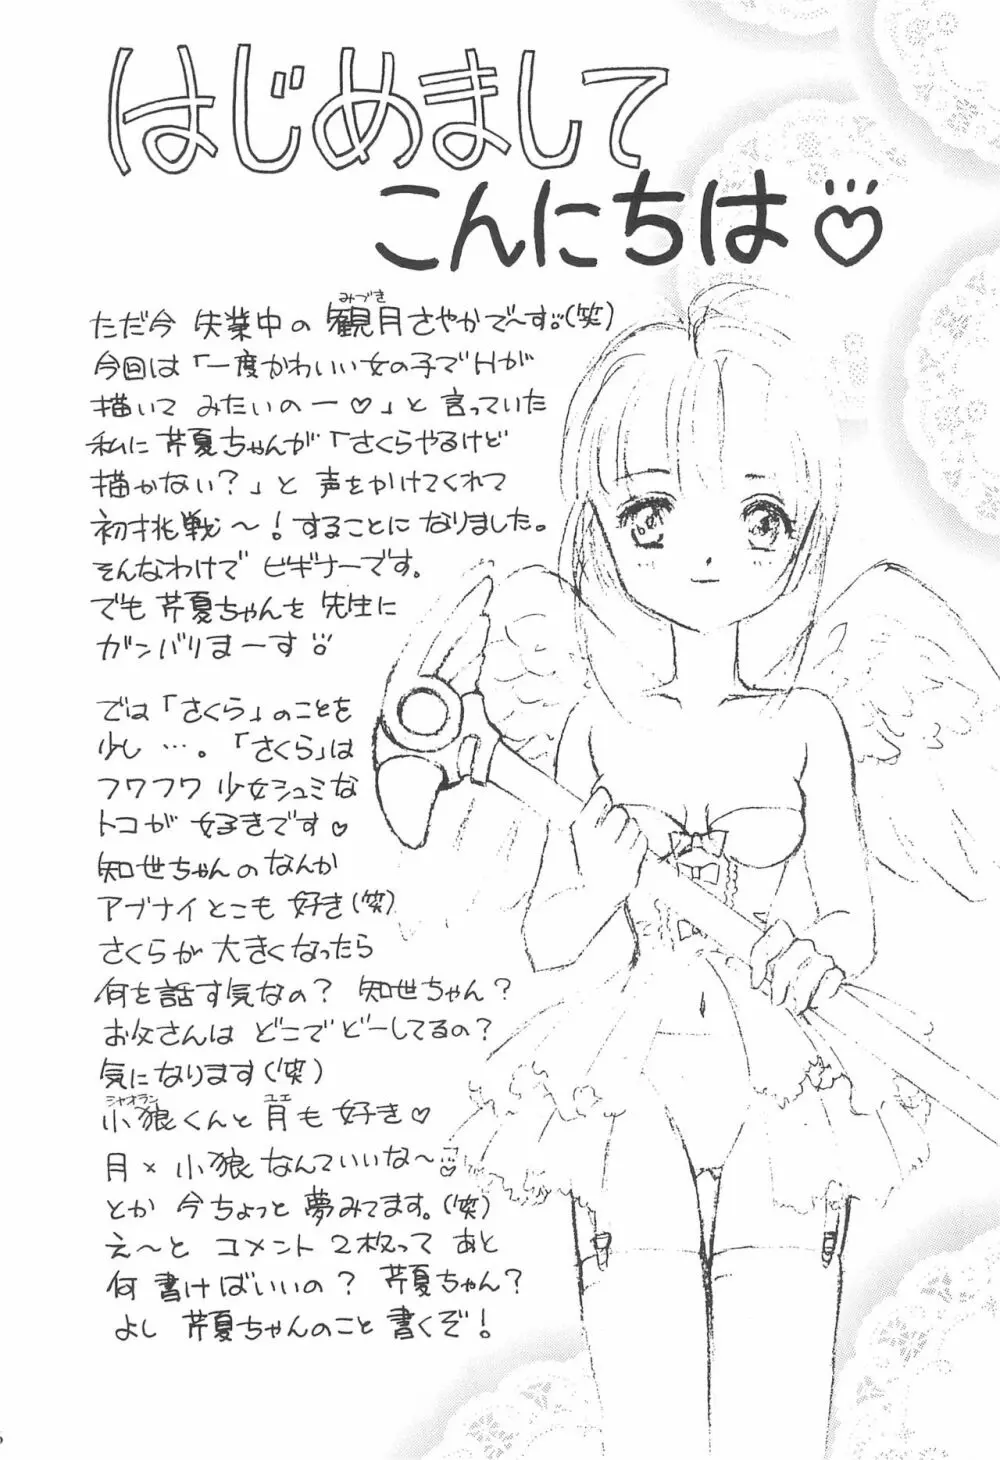 はじめまして
こんにちは♡
ただ今 失業中の 観月さやかで〜す。(笑)
みづき
今回は「一度かわいい女の子でHが
描いて みたいのー♡」と 言っていた
私に 芹夏ちゃんが「さくらやるけど
描かない?」と 声をかけてくれて
初挑戦〜!することに なりました。
そんなわけで ビギナーです。
でも 芹夏ちゃんを 先生に
ガンバりまーす
では「さくら」のことを
少し…。「さくら」は
フワフワ 少女シュミな
トコが 好きです♡
知世ちゃんのなんか
アブナイとこも 好き(笑)
さくらが 大きくなったら
何を話す気なの? 知世ちゃん?
お父さんは どこでどーしてるの?
気になります(笑)
シャオラン ユエ
小狼くんと 月も 好き♡
月×小狼なんていいな〜
とか 今ちょっと 夢みてます。(笑)
え〜と コメント 2枚って あと
何 書けばいいの? 芹夏ちゃん?
よし 芹夏ちゃんのこと 書くぞ!